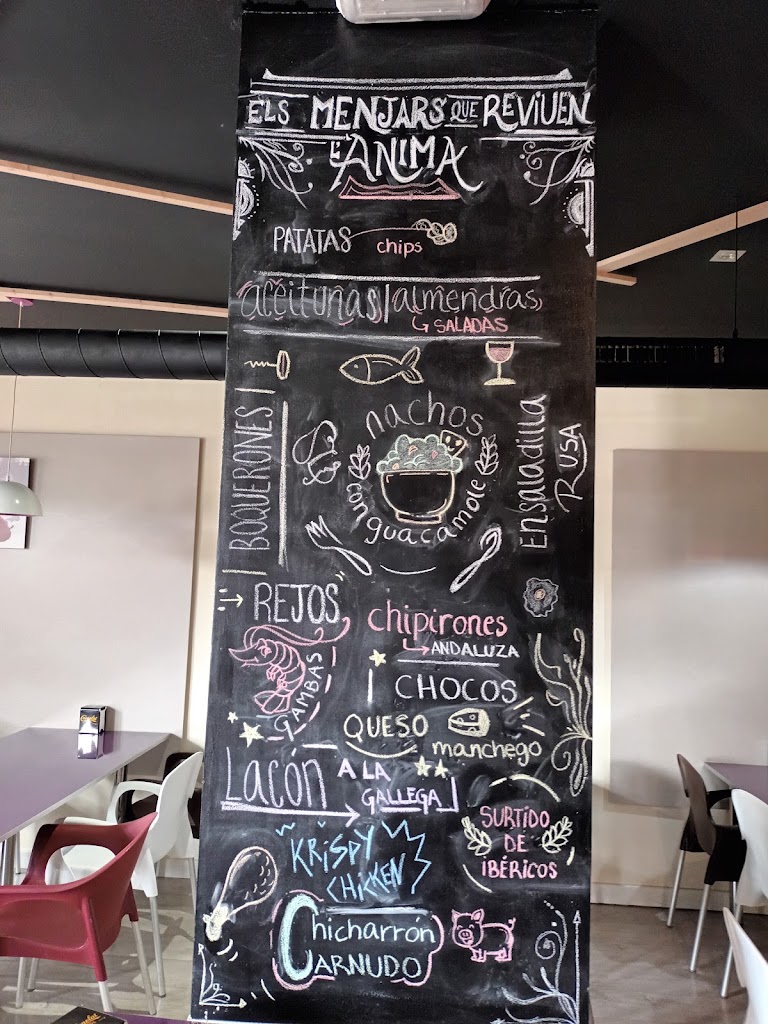 ELS MENJARS QUE REVIUEN
L'ÀNIMA
PATATAS chips
aceitunas | almendras
SALADAS
BOQUERONES
nachos
con guacamole
Ensaladilla
RUSA
REJOS
chipirones
ANDALUZA
GAMBAS
CHOCOS
QUESO
manchego
Lacón A LA
GALLEGA
SURTIDO
DE
IBÉRICOS
KRISPY
CHICKEN
Chicharrón
CARNUDO